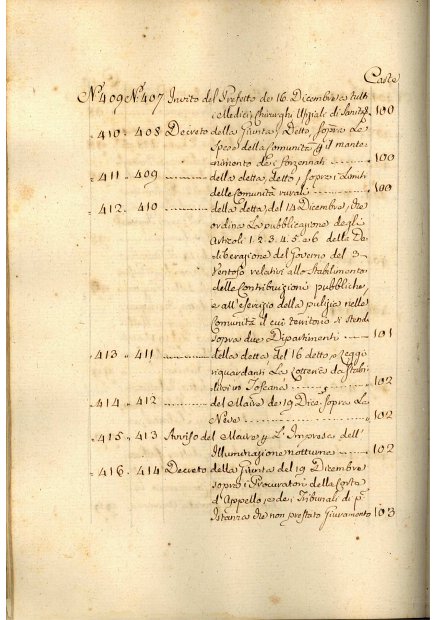 Carte
N.º 409 N.º 407 Invito del Prefetto de 16 Dicembre a tutti
i Medici, Chirurghi Ufiziale di Sanità 100
410 408 Decreto della Giunta, Detto, sopra Le
Spese della Comunità p il mante-
nimento de i forzennati 100
411 409 della detta, detto, sopra i Limiti
delle Comunità rurali 100
412 410 della detta, del 14 Dicembre, che
ordina La pubblicazione degli
Articoli 1. 2. 3. 4. 5. e 6 della De
liberazione del Governo del 3
Ventoso relativi allo Stabilimento
delle Contribuzioni pubbliche,
e all'esercizio della pulizia nelle
Comunità il cui territorio si stende
sopra due Dipartimenti 101
413 411 della detta del 16 detto, e Leggi
riguardanti La Lotteria da Stabi
lirsi in Toscana 102
414 412 del Maire de 19 Dice. sopra La
Neve 102
415 413 Avviso del Maire p L'Impresa dell'
Illuminazione notturna 102
416 414 Decreto della Giunta del 19 Dicembre
sopra i Procuratori della Corte
d'Appello, e de i Tribunali di p.ª
Istanza che non prestato Giuramento 103